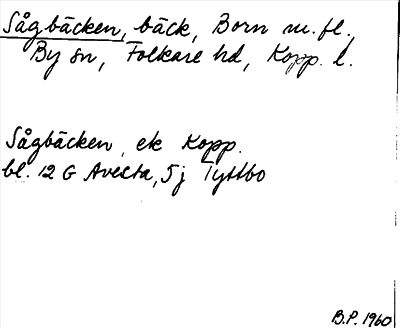 Sågbäcken, bäck, Born m. fl.,
By sn, Folkare hd, Kopp. l.
Sågbäcken, ek Kopp.
bl. 12 G Avesta, 5j Tyttbo
B.P. 1960